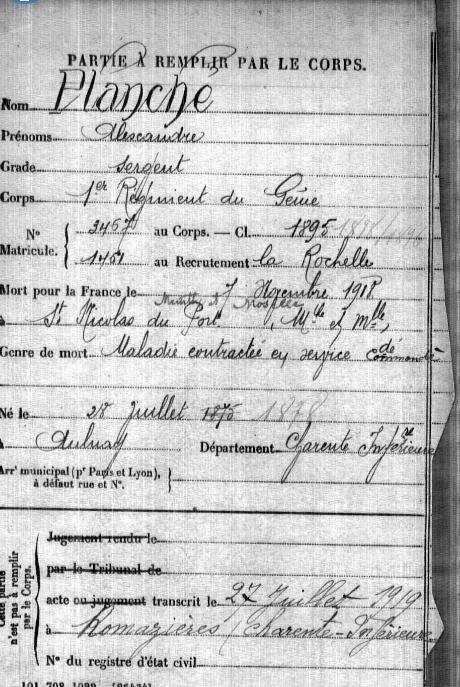 PARTIE À REMPLIR PAR LE CORPS.
Nom Planché
Prénoms Alexandre
Grade sergent
Corps 1er Régiment du Génie
N° Matricule. { 2457 au Corps. — Cl. 1895
1451 au Recrutement la Rochelle
Mort pour la France le 7 Novembre 1918
Meurthe et Moselle
à St Nicolas du Port (Mthe et Mlle)
Genre de mort Maladie contractée en service commandé
Né le 28 Juillet 1875 1878
à Aulnay Département Charente Inférieure
Arrt municipal (pr Paris et Lyon), à défaut rue et N°. }
Cette partie n'est pas à remplir par le Corps.
Jugement rendu le
par le Tribunal de
acte ou jugement transcrit le 27 Juillet 1919
à Romazières (Charente-Inférieure)
N° du registre d'état civil